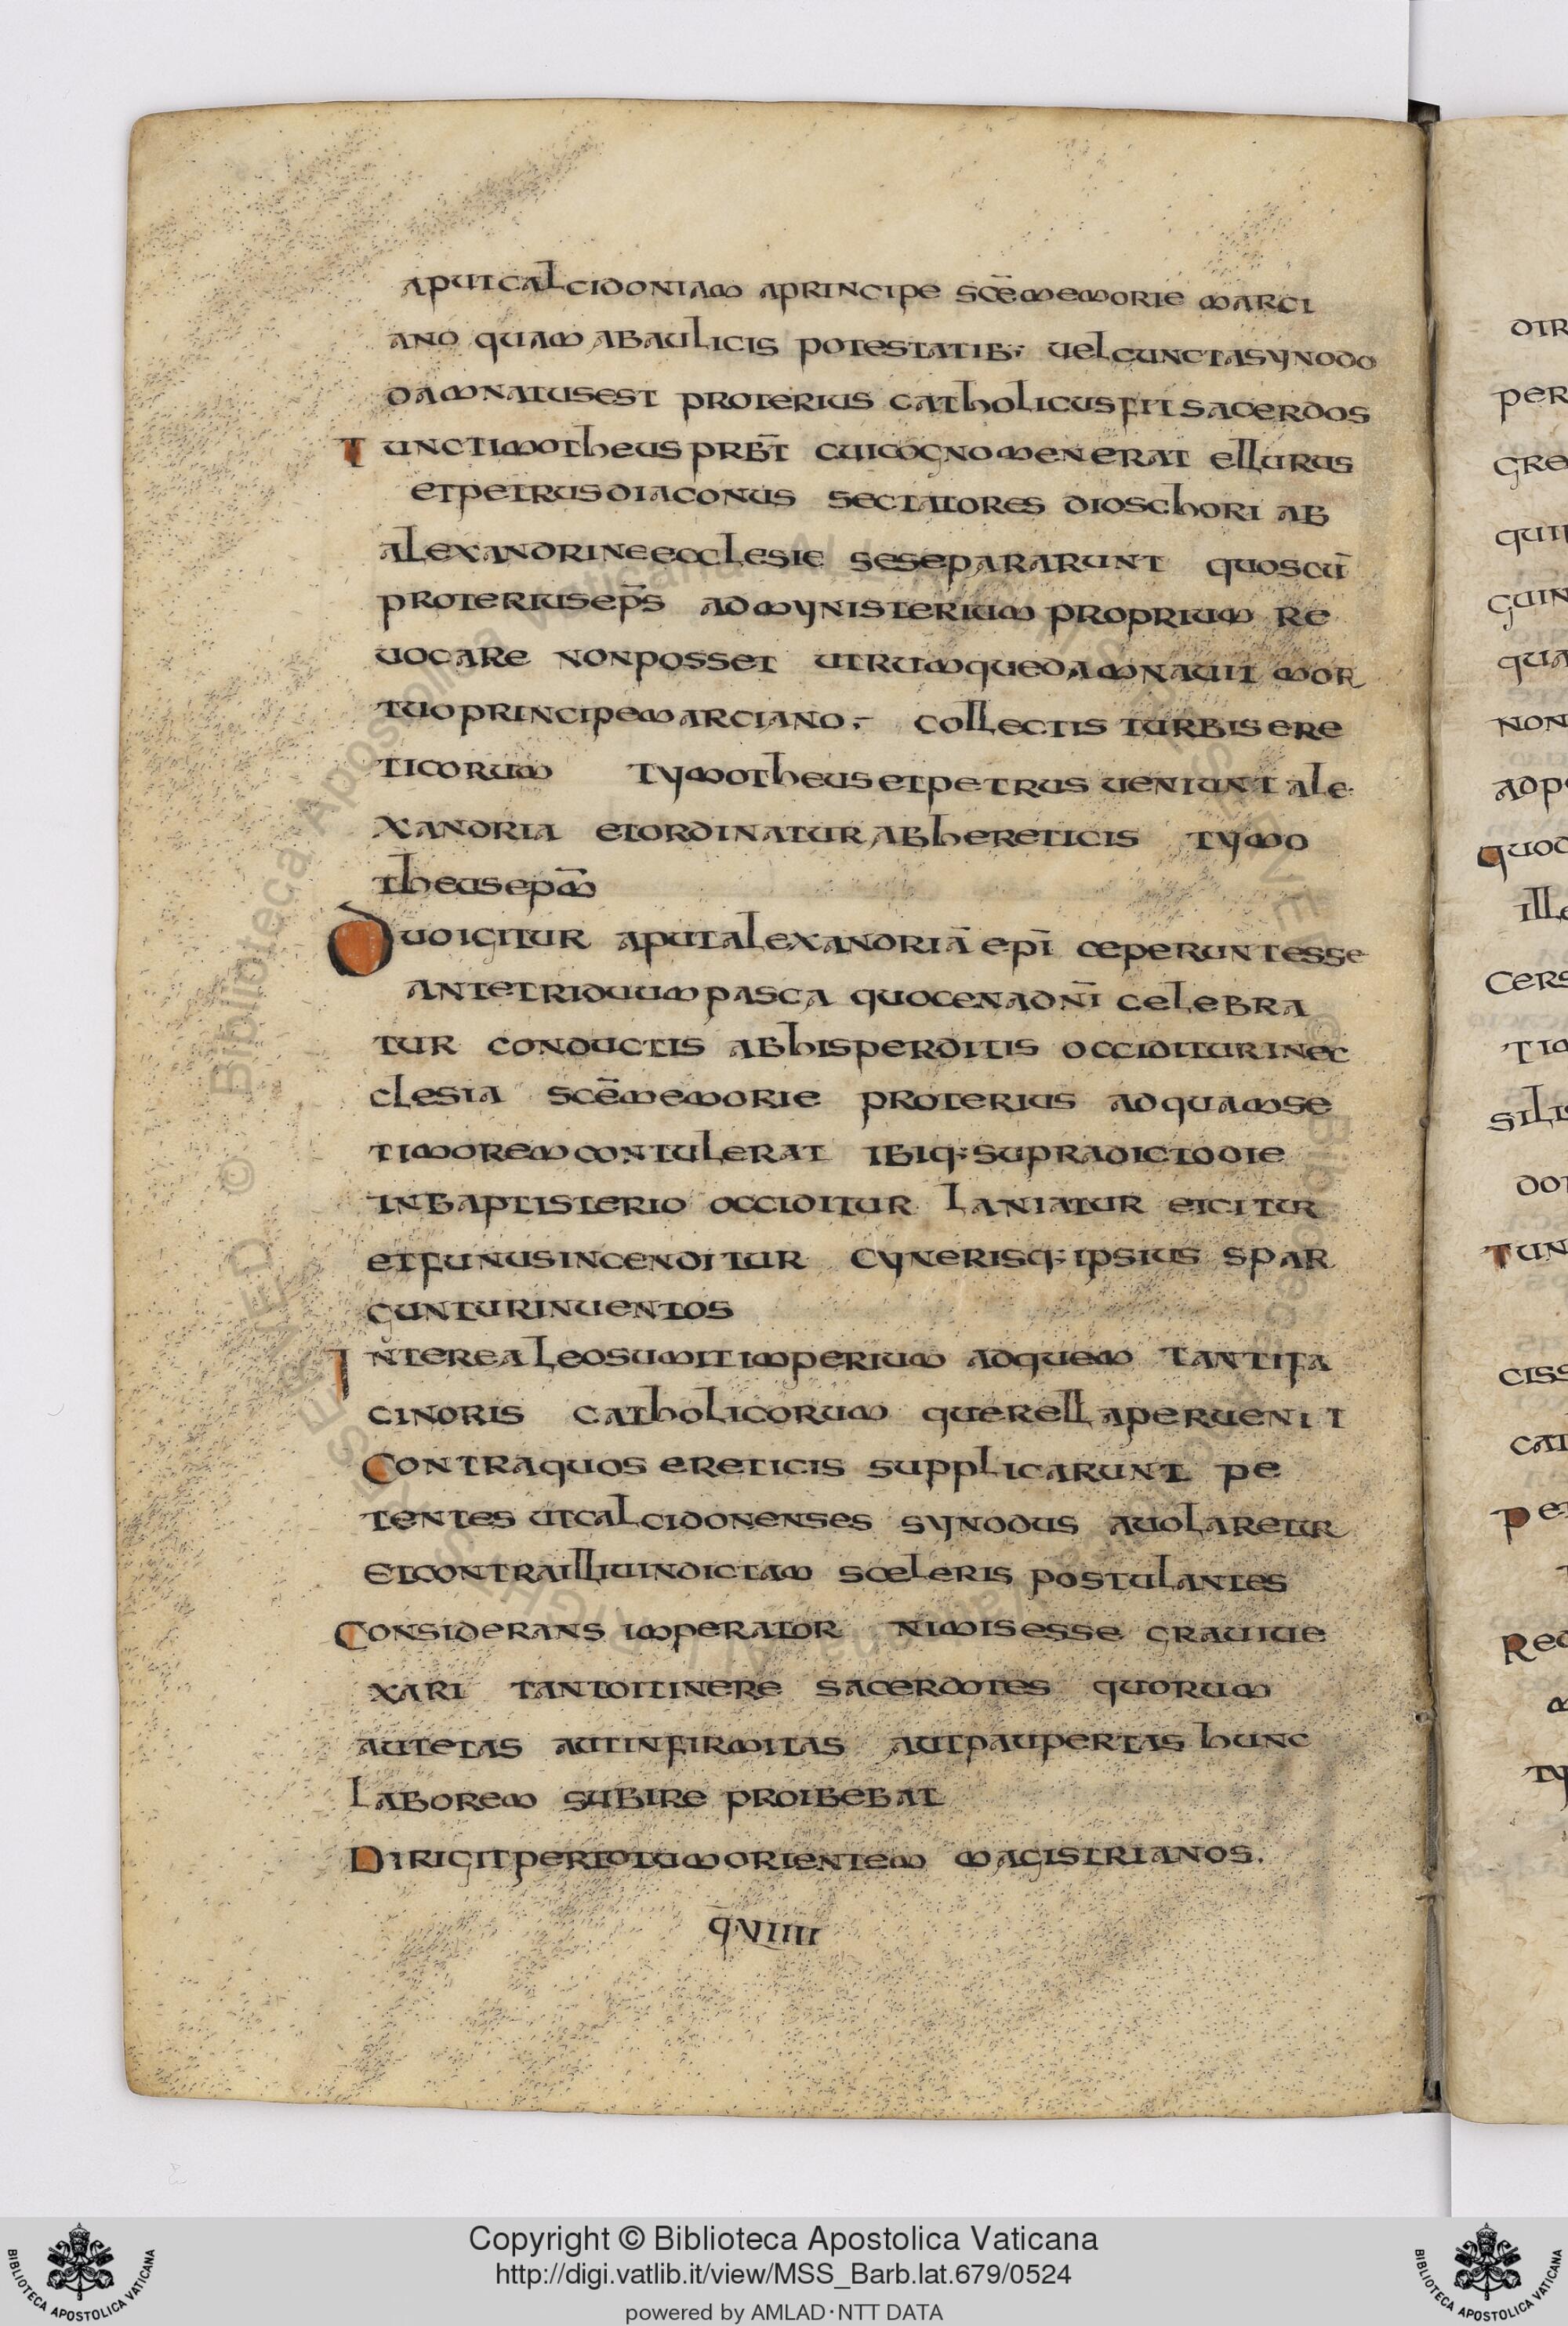 aput calcidoniam a principe scē memorie marci
ano quam ab aulicis potestatib; uel cuncta synodo
damnatus est proterius catholicus fit sacerdos
Tunc timotheus prbt̄ cui cognomen erat ellurus
et petrus diaconus sectatores dioschori ab
alexandrine ecclesie se separarunt quos cū
proterius ep̄s ad mynisterium proprium re
uocare non posset utrumque damnauit mor
tuo principe marciano; collectis turbis ere
ticorum tymotheus et petrus ueniunt ale
xandria et ordinatur ab hereticis tymo
theus epm̄
Duo igitur aput alexandriā epī ceperunt esse
ante triduum pasca quo cena dnī celebra
tur conductis ab his perditis occiditur in ec
clesia scē memorie proterius ad quam se
timorem contulerat ibiq; supradicto die
in baptisterio occiditur laniatur eicitur
et funus incenditur cynerisq; ipsius spar
guntur in uentos
Interea leo sumit imperium ad quem tanti fa
cinoris catholicorum querella peruenit
Contra quos ereticis supplicarunt pe
tentes ut calcidonenses synodus auolaretur
et contra illi uindictam sceleris postulantes
Considerans imperator nimis esse graui ue
xari tanto itinere sacerdotes quorum
aut etas aut infirmitas aut paupertas hunc
laborem subire proibebat
Dirigit per totum orientem magistrianos.
q̄ VIIII
dir
per
gre
qui
guin
qua
non
adp
quod
ille
cers
tim
silis
dot
tun
ciss
cat
pe
Rec
m
ty
Copyright © Biblioteca Apostolica Vaticana
http://digi.vatlib.it/view/MSS_Barb.lat.679/0524
powered by AMLAD·NTT DATA
BIBLIOTECA APOSTOLICA VATICANA
BIBLIOTECA APOSTOLICA VATICANA